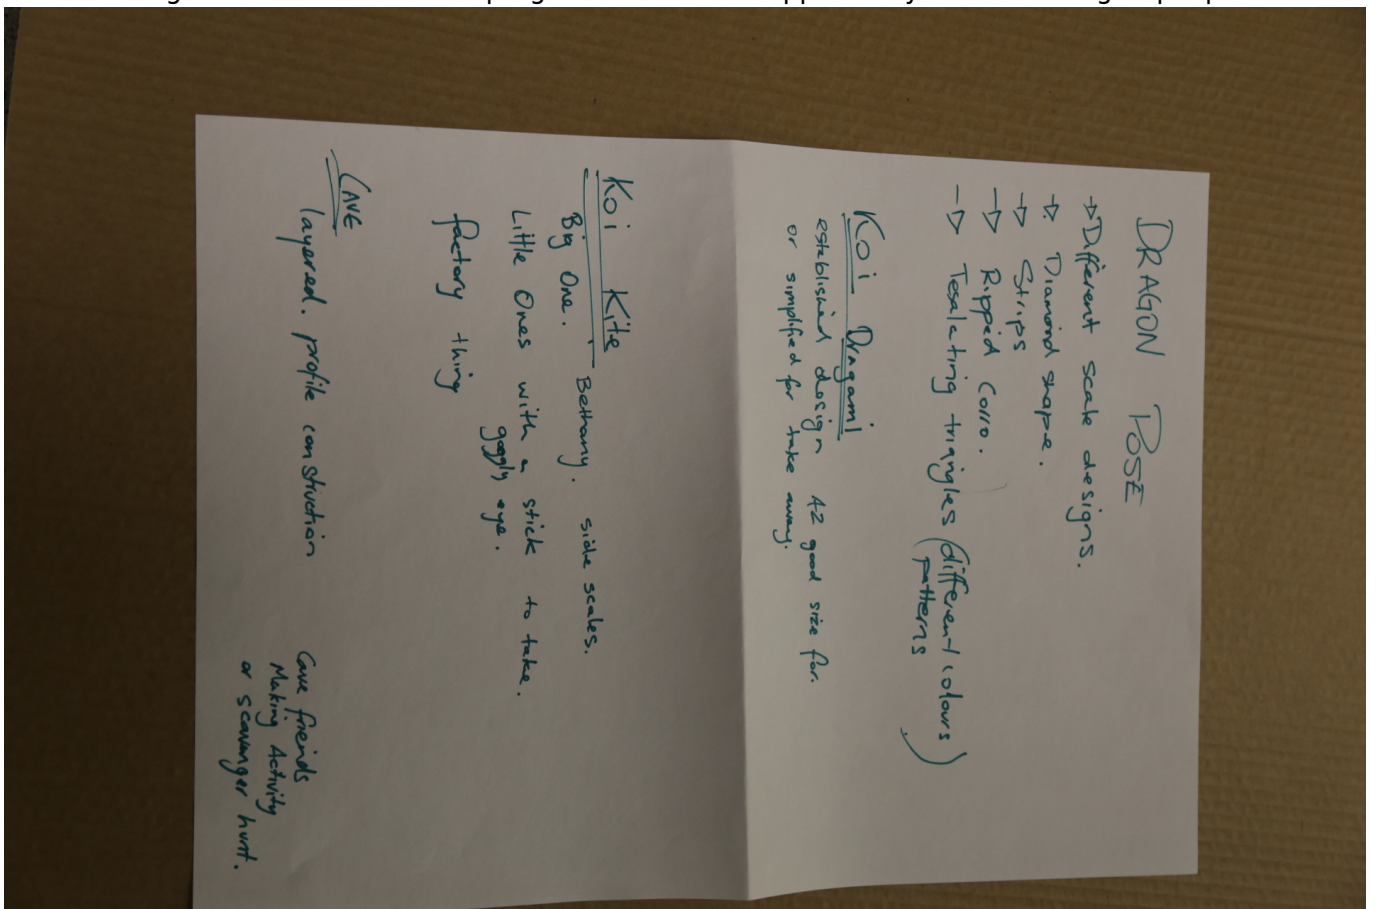 DRAGON POSE
→ Different scale designs.
→ Diamond shape.
→ Strips
→ Ripped Corro.
→ Tesalating triangles (different colours
patterns)
Koi Oragami
established design A2 good size for.
or simplified for take away.
Koi Kite
Big One. Bethany. side scales.
Little Ones with a stick to take.
googly eye.
factory thing
CAVE
layered. profile construction
Cave friends
Making Activity
or scavanger hunt.